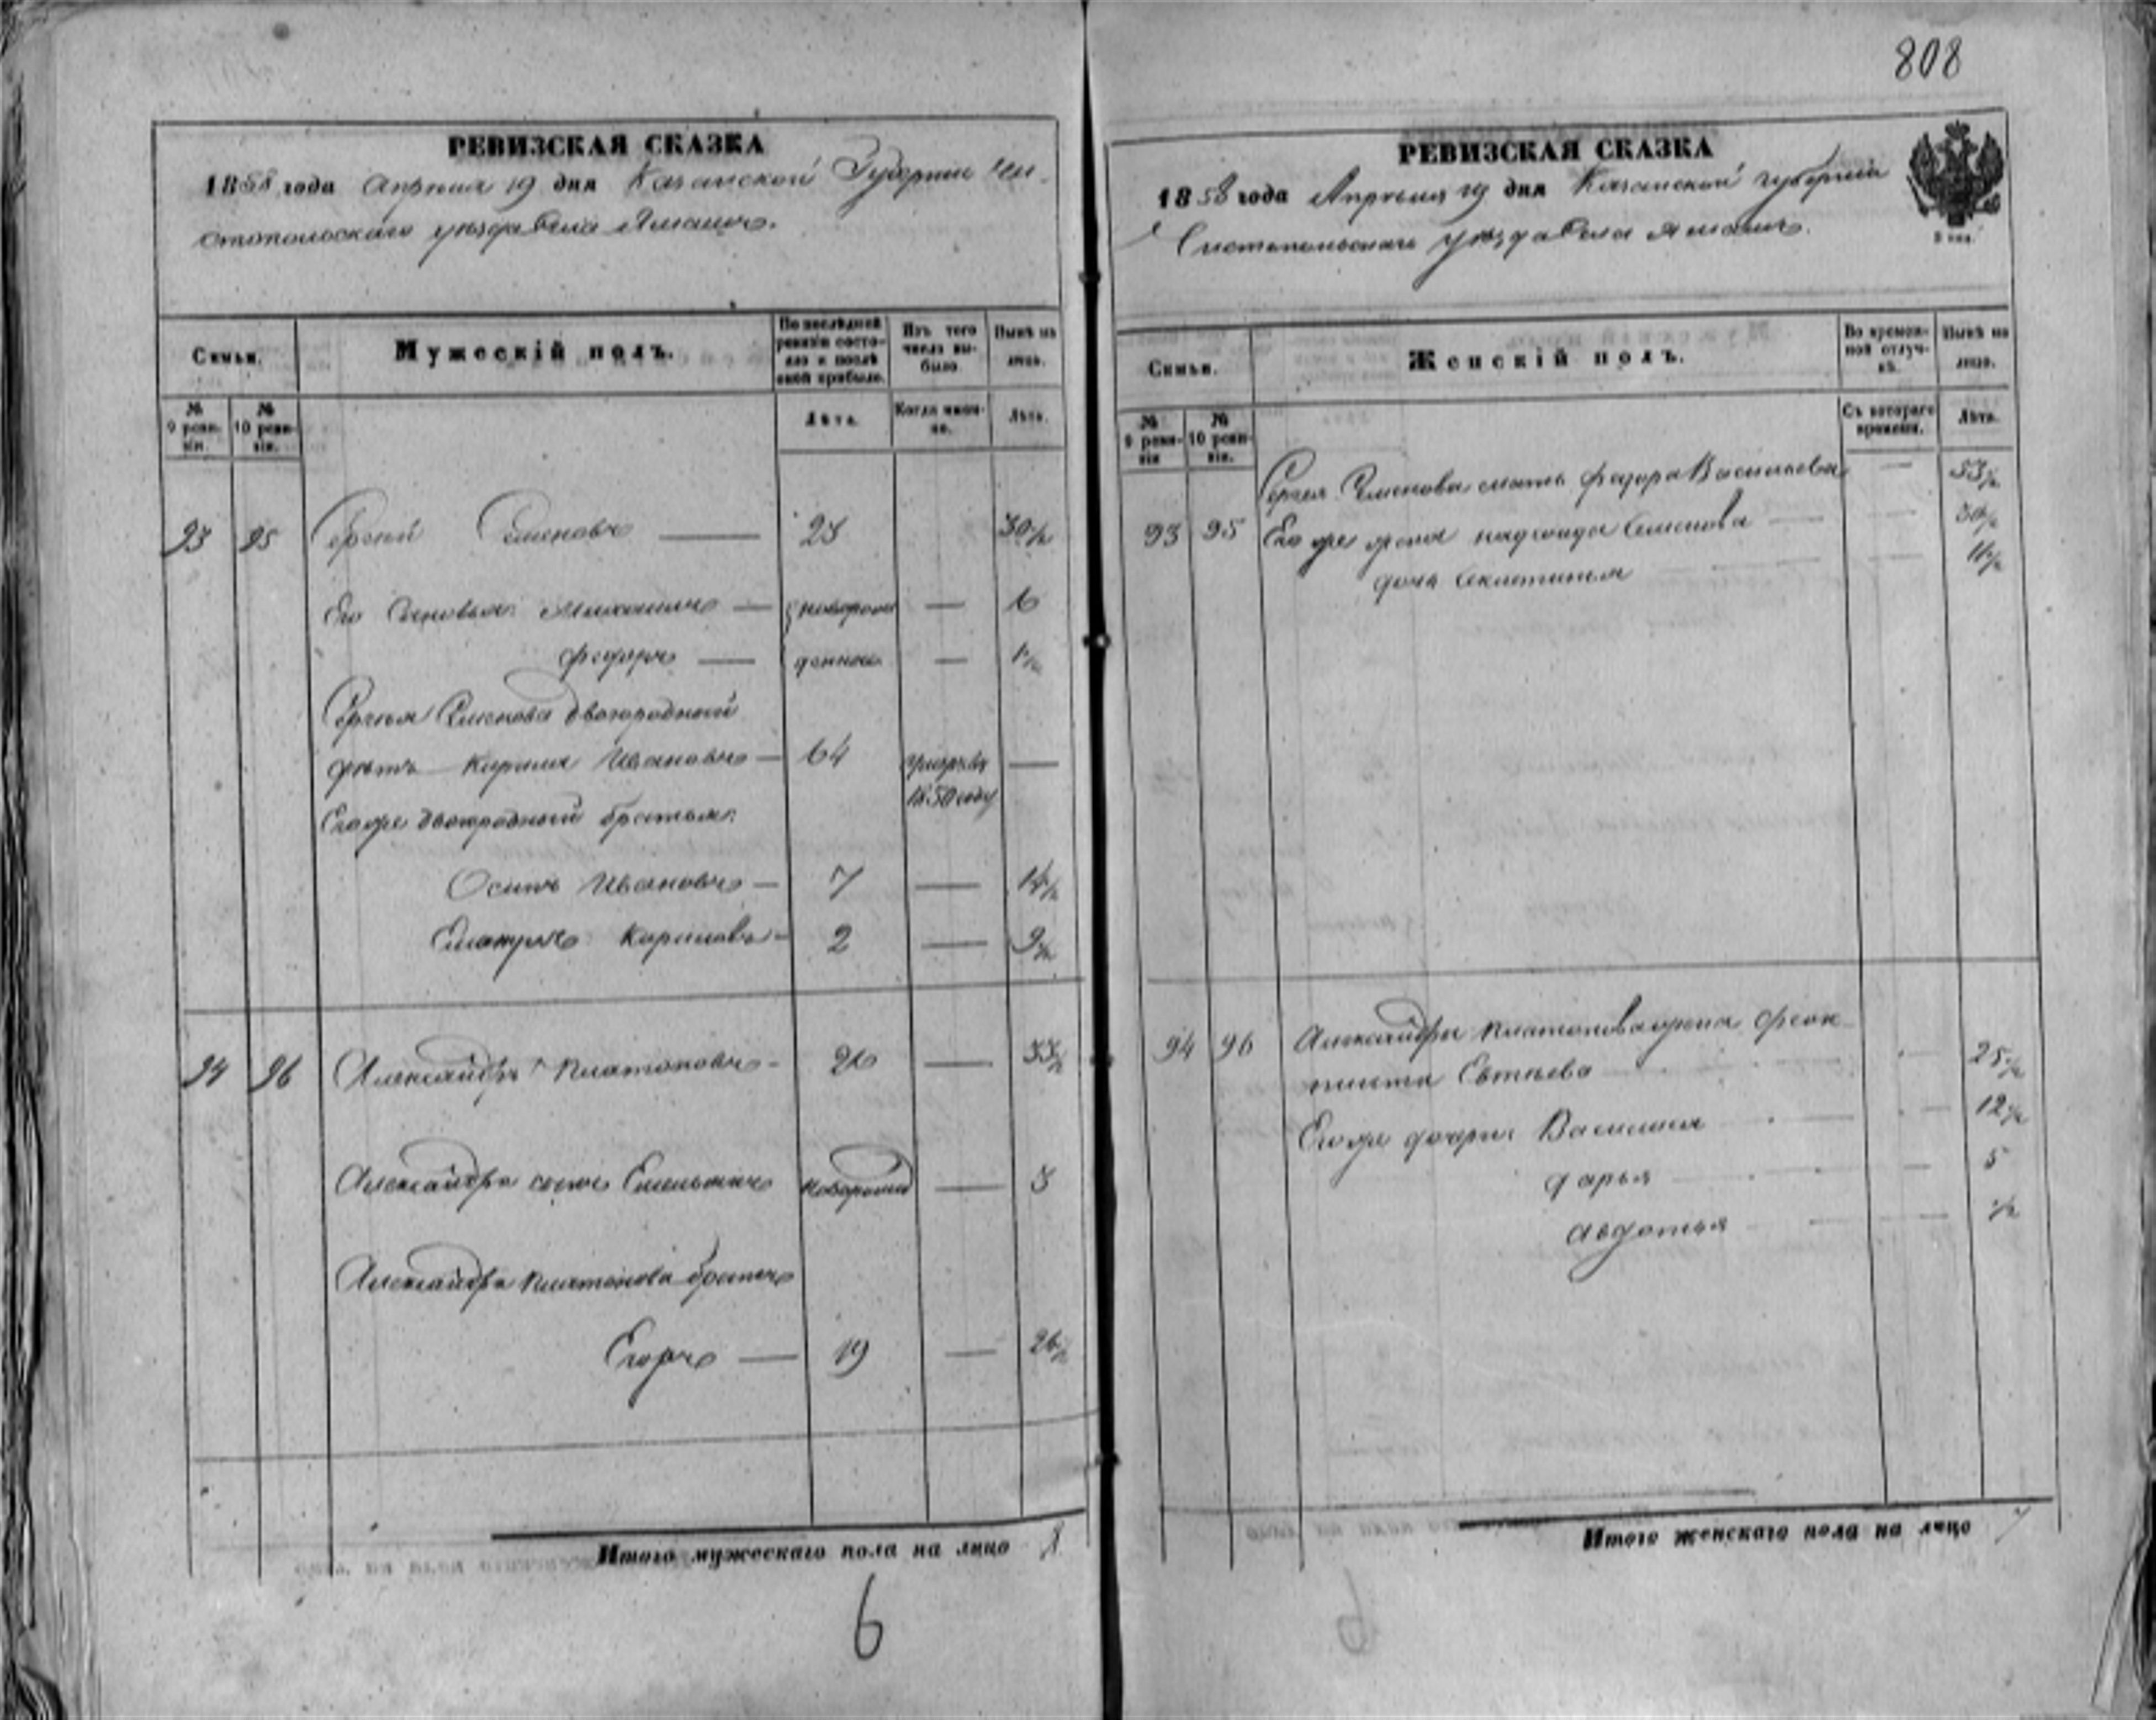 808
РЕВИЗСКАЯ СКАЗКА
1858 года Апреля 19 дня Казанской Губернии Чи-
стопольскаго уезда села
Семьи.
Мужескій полъ.
По последней ревизіи состояло и после оной прибыло.
Изъ того числа выбыло.
Ныне на лицо.
№ 9 ревизіи.
№ 10 ревизіи.
Лета.
Когда именно.
Лета.
93 95 Сергей Семеновъ — 23 30½
Его Сыновья: Михаилъ — новорож — 6
Федоръ — денные —
Сергея Семенова двоюродный
дядя Кирила Ивановъ — 64 —
1850 году
Его же двоюродный братья:
Осипъ Ивановъ — 7 — 14½
Кириловъ — 2 — 9½
94 96 Александръ Платоновъ — 26 — 33½
Александра сынъ Емельянъ новорожд — 3
Александра Платонова братъ
Егоръ — 19 — 26½
Итого мужескаго пола на лицо 8
6
РЕВИЗСКАЯ СКАЗКА
1858 года Апреля 19 дня Казанской губерніи
Чистопольскаго уезда села
Семьи.
Женскій полъ.
Во временной отлучке.
Ныне на лицо.
№ 9 ревизіи
№ 10 ревизіи.
Съ котораго времени.
Лета.
Сергея Семенова мать Федора Васильева — 53½
93 95 Его же жена Надежда Семенова — 30½
дочь — 11½
94 96 Александра Платонова жена Феок-
тиста — 25½
Его же дочери Василиса — 12½
Дарья — 5
Авдотья — ½
Итого женскаго пола на лицо 7